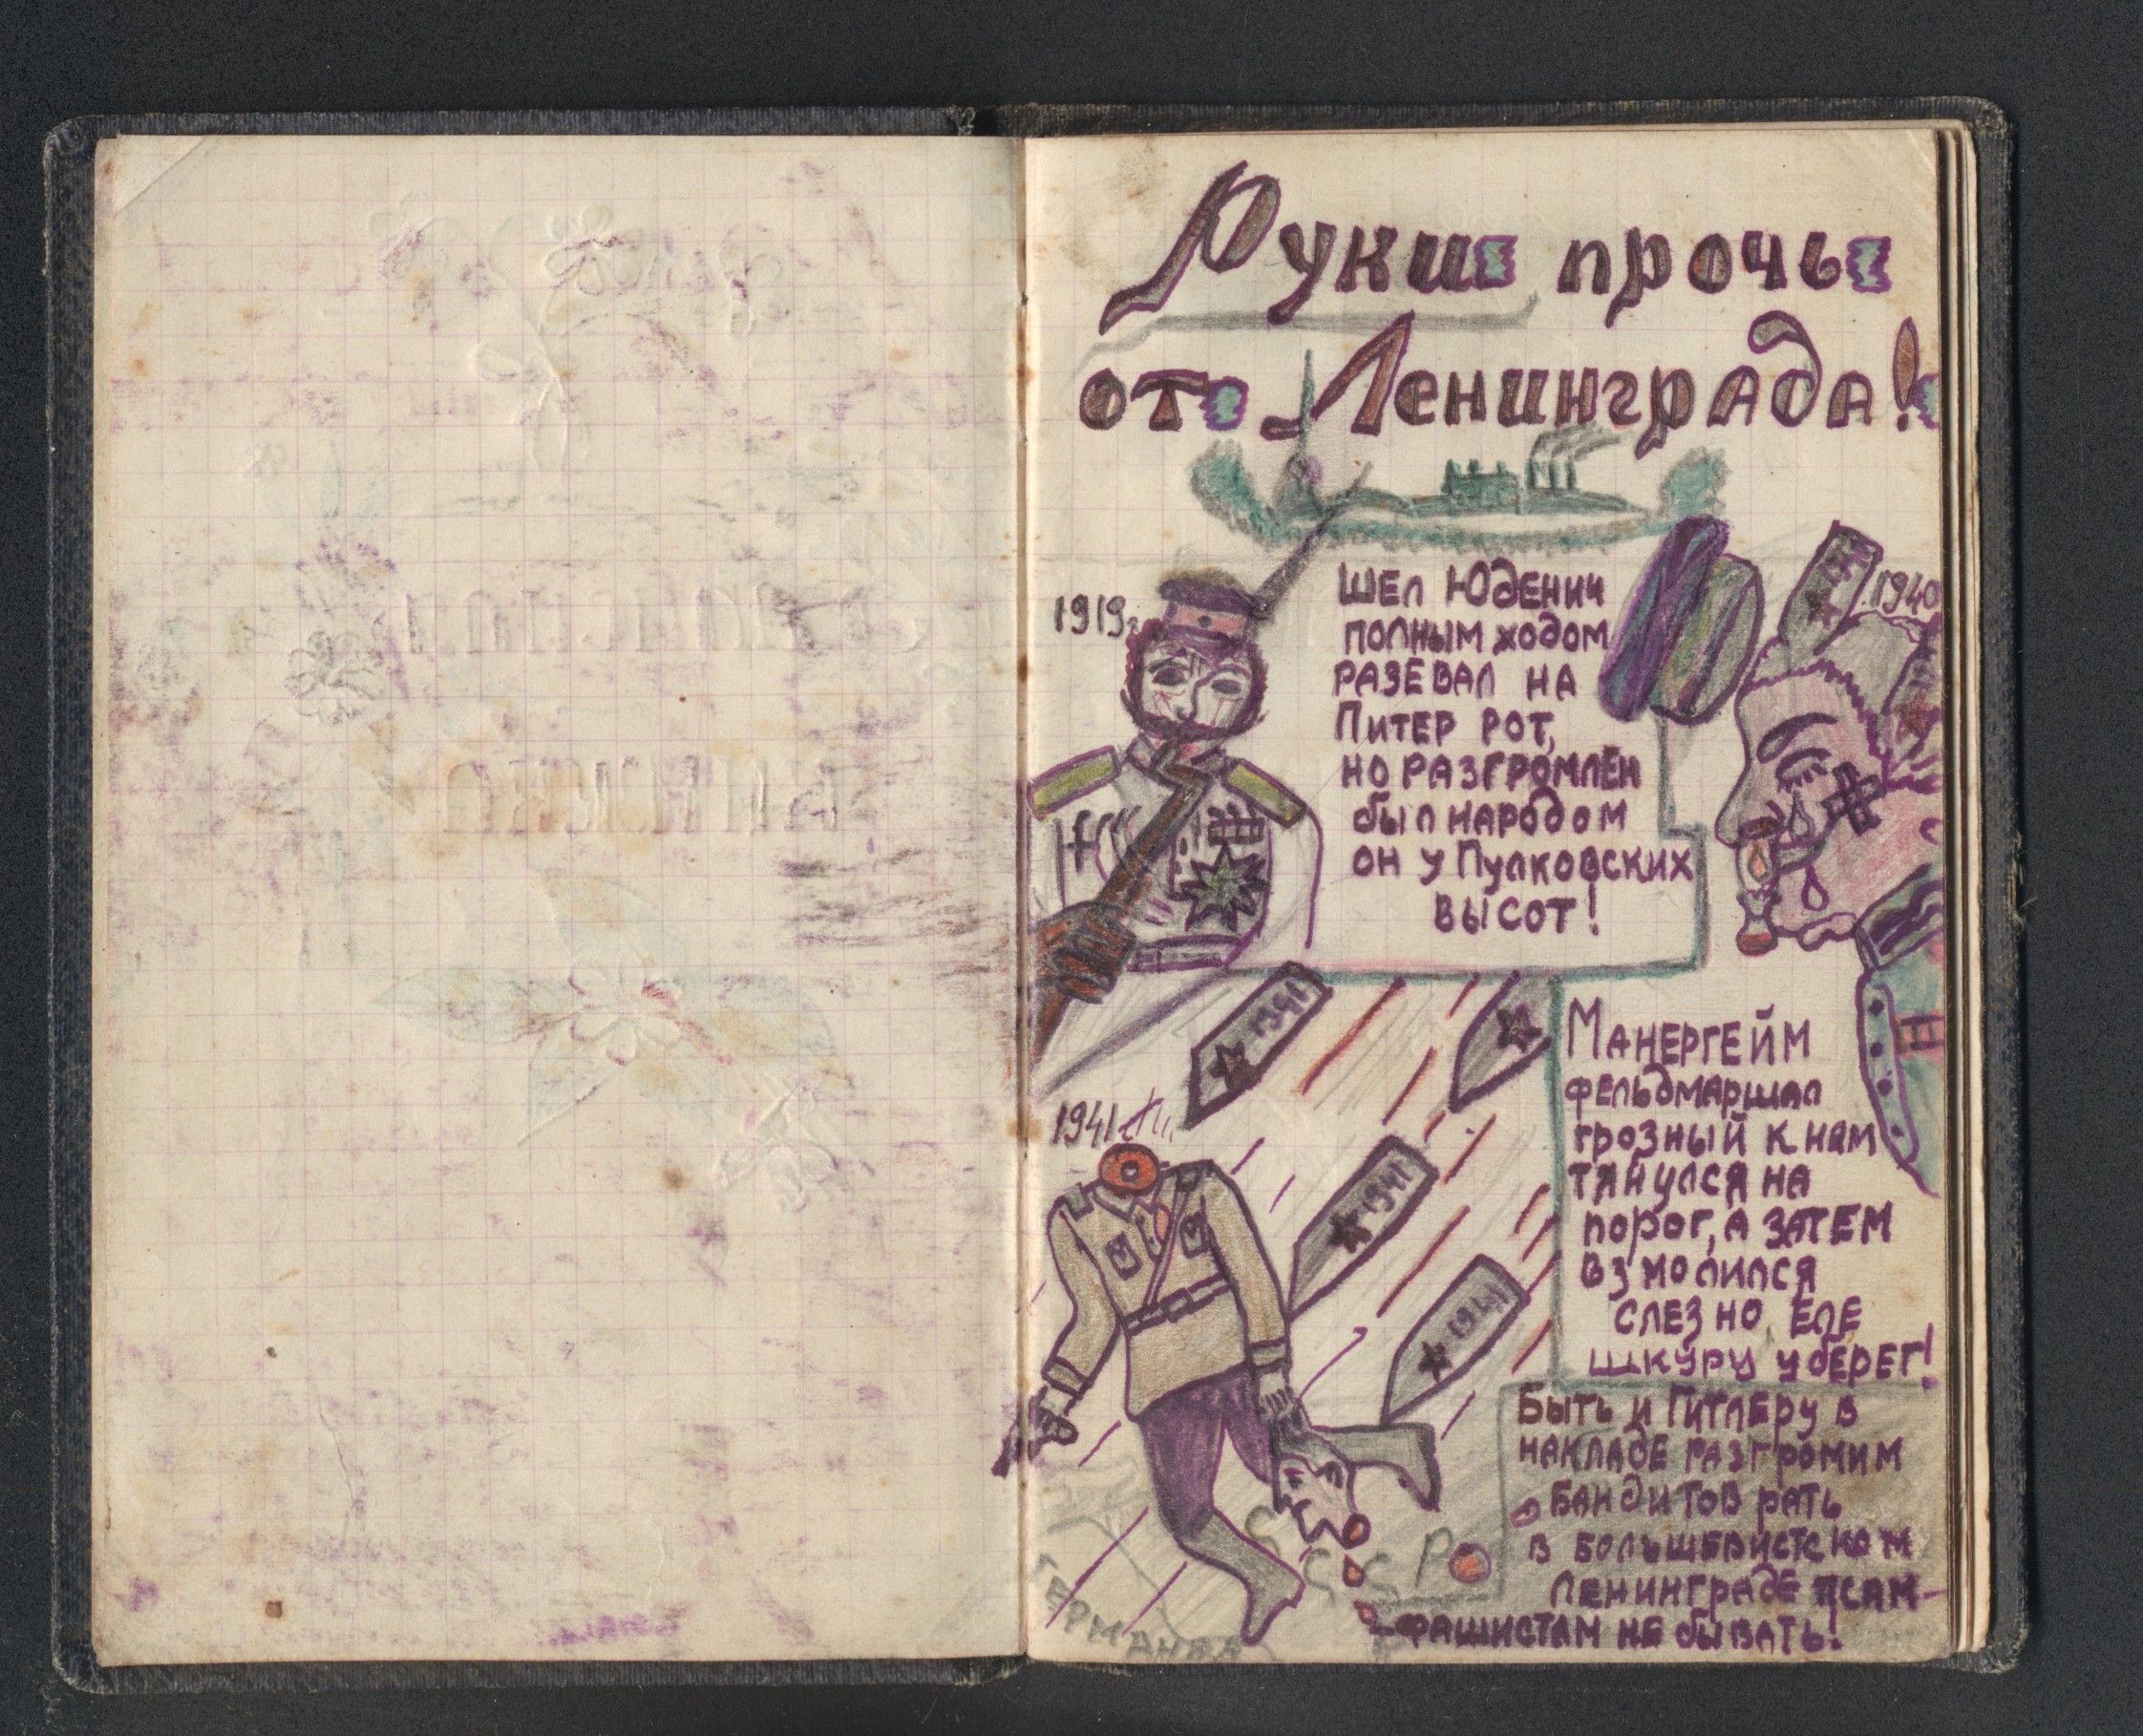 Руки прочь
от Ленинграда!
1919г.
Шел Юденич
полным ходом
разевал на
Питер рот,
но разгромлен
был народом
он у Пулковских
высот!
1940
1941
Манергейм
фельдмаршал
грозный к нам
тянулся на
порог, а затем
взмолился
слезно, еле
шкуру уберег!
1941
1941
1941
Быть и Гитлеру в
накладе разгромим
бандитов рать
в большевистском
Ленинграде псам-
фашистам не бывать!
СССР
Германия